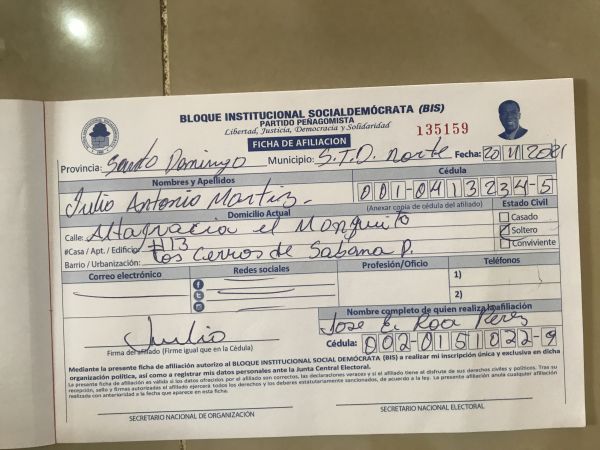 BLOQUE INSTITUCIONAL SOCIALDEMÓCRATA (BIS)
PARTIDO PEÑAGOMISTA
Libertad, Justicia, Democracia y Solidaridad
135159
FICHA DE AFILIACION
Provincia: Santo Domingo Municipio: S.T.D. Norte Fecha: 20/11/2021
Nombres y Apellidos Cédula
Julio Antonio Martiz 001-0413234-5
Domicilio Actual (Anexar copia de cédula del afiliado) Estado Civil
Calle: Altagracia el Monguito Casado
#Casa / Apt. / Edificio: #13 Soltero
Barrio / Urbanización: Los Cerros de Sabana P. Conviviente
Correo electrónico Redes sociales Profesión/Oficio Teléfonos
1)
2)
Nombre completo de quien realiza la afiliación
Julio Jose E. Roa Perez
Firma del afiliado (Firme igual que en la Cédula) Cédula: 002-0151022-9
Mediante la presente ficha de afiliación autorizo al BLOQUE INSTITUCIONAL SOCIAL DEMÓCRATA (BIS) a realizar mi inscripción única y exclusiva en dicha
organización política, así como a registrar mis datos personales ante la Junta Central Electoral.
La presente ficha de afiliación es válida si los datos ofrecidos por el afiliado son correctos, las declaraciones veraces y si el afiliado tiene el disfrute de sus derechos civiles y políticos. Tras su
recepción, sello y firmas autorizadas el afiliado ejercerá todos los derechos y los deberes estatutariamente sancionados, de acuerdo a la ley. La presente afiliación anula cualquier afiliación
realizada con anterioridad a la fecha que aparece en esta ficha.
SECRETARIO NACIONAL DE ORGANIZACIÓN SECRETARIO NACIONAL ELECTORAL